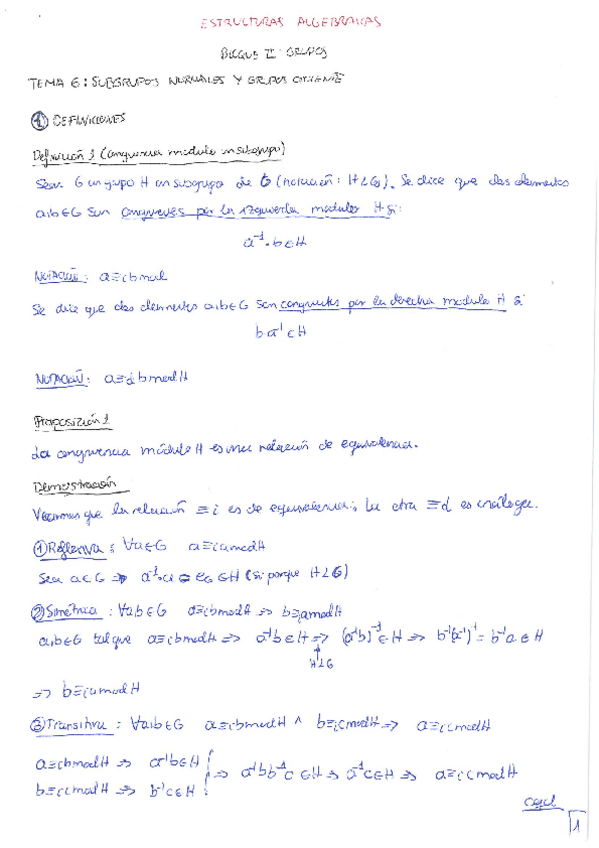 ESTRUCTURAS ALGEBRAICAS
BLOQUE II: GRUPOS
TEMA 6: SUBGRUPOS NORMALES Y GRUPOS COCIENTE
① DEFINICIONES
Definición 1 (congruencia módulo un subgrupo)
Sean G un grupo H un subgrupo de G (notación: H≤G). Se dice que dos elementos
a,b∈G son congruentes por la izquierda módulo H si:
a⁻¹·b∈H
NOTACIÓN: a≡ᵢb mod
Se dice que dos elementos a,b∈G son congruentes por la derecha módulo H si
b·a⁻¹∈H
NOTACIÓN: a≡d b mod H
Proposición 1
La congruencia módulo H es una relación de equivalencia.
Demostración
Veamos que la relación ≡i es de equivalencia; la otra ≡d es análoga.
① Reflexiva: ∀a∈G a≡ᵢa mod H
Sea a∈G ⇒ a⁻¹·a = e_G∈H (sí porque H≤G)
② Simétrica: ∀a,b∈G a≡ᵢb mod H ⇒ b≡ᵢa mod H
a,b∈G tal que a≡ᵢb mod H ⇒ a⁻¹b∈H ⇒ (a⁻¹b)⁻¹∈H ⇒ b⁻¹(a⁻¹)⁻¹ = b⁻¹a ∈ H
H≤G
⇒ b≡ᵢa mod H
③ Transitiva: ∀a,b∈G a≡ᵢb mod H ∧ b≡ᵢc mod H ⇒ a≡ᵢc mod H
a≡ᵢb mod H ⇒ a⁻¹b∈H
b≡ᵢc mod H ⇒ b⁻¹c∈H } ⇒ a⁻¹bb⁻¹c∈H ⇒ a⁻¹c∈H ⇒ a≡ᵢc mod H
cqd
1